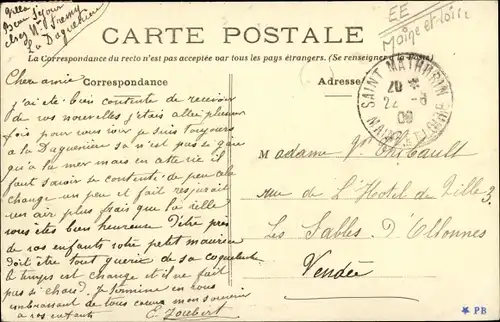 Villa
Beau Séjour
chez Mme Fremy
La Daguenière
EE
Maine et Loire
CARTE POSTALE
La Correspondance du recto n'est pas acceptée par tous les pays étrangers. (Se renseigner à la Poste)
Correspondance
Adresse
SAINT MATHURIN
20
22 - 8
09
MAINE ET LOIRE
Chère amie
j'ai été bien contente de recevoir
de vos nouvelles j'étais allée plusieurs
fois pour vous voir je suis toujours
à la Daguenière sa n'est pas si gai
qu'à la mer mais en cette vie il
faut savoir se contenté de peu cela
change un peu et fait respirait
un air plus frais que la ville
vous êtes bien heureuse d'être près
de vos enfants votre petit maurice
doit être tout guérie de sa coqueluche
le temps est changé et il ne fait
pas si chaud. Je termine en vous
embrassant de tous coeur mon souvenir
à vos enfants E. Joubert
Madame Vve Thibault
rue de L'Hotel de Ville 3.
Les Sables. d'Ollonnes
Vendée
PB